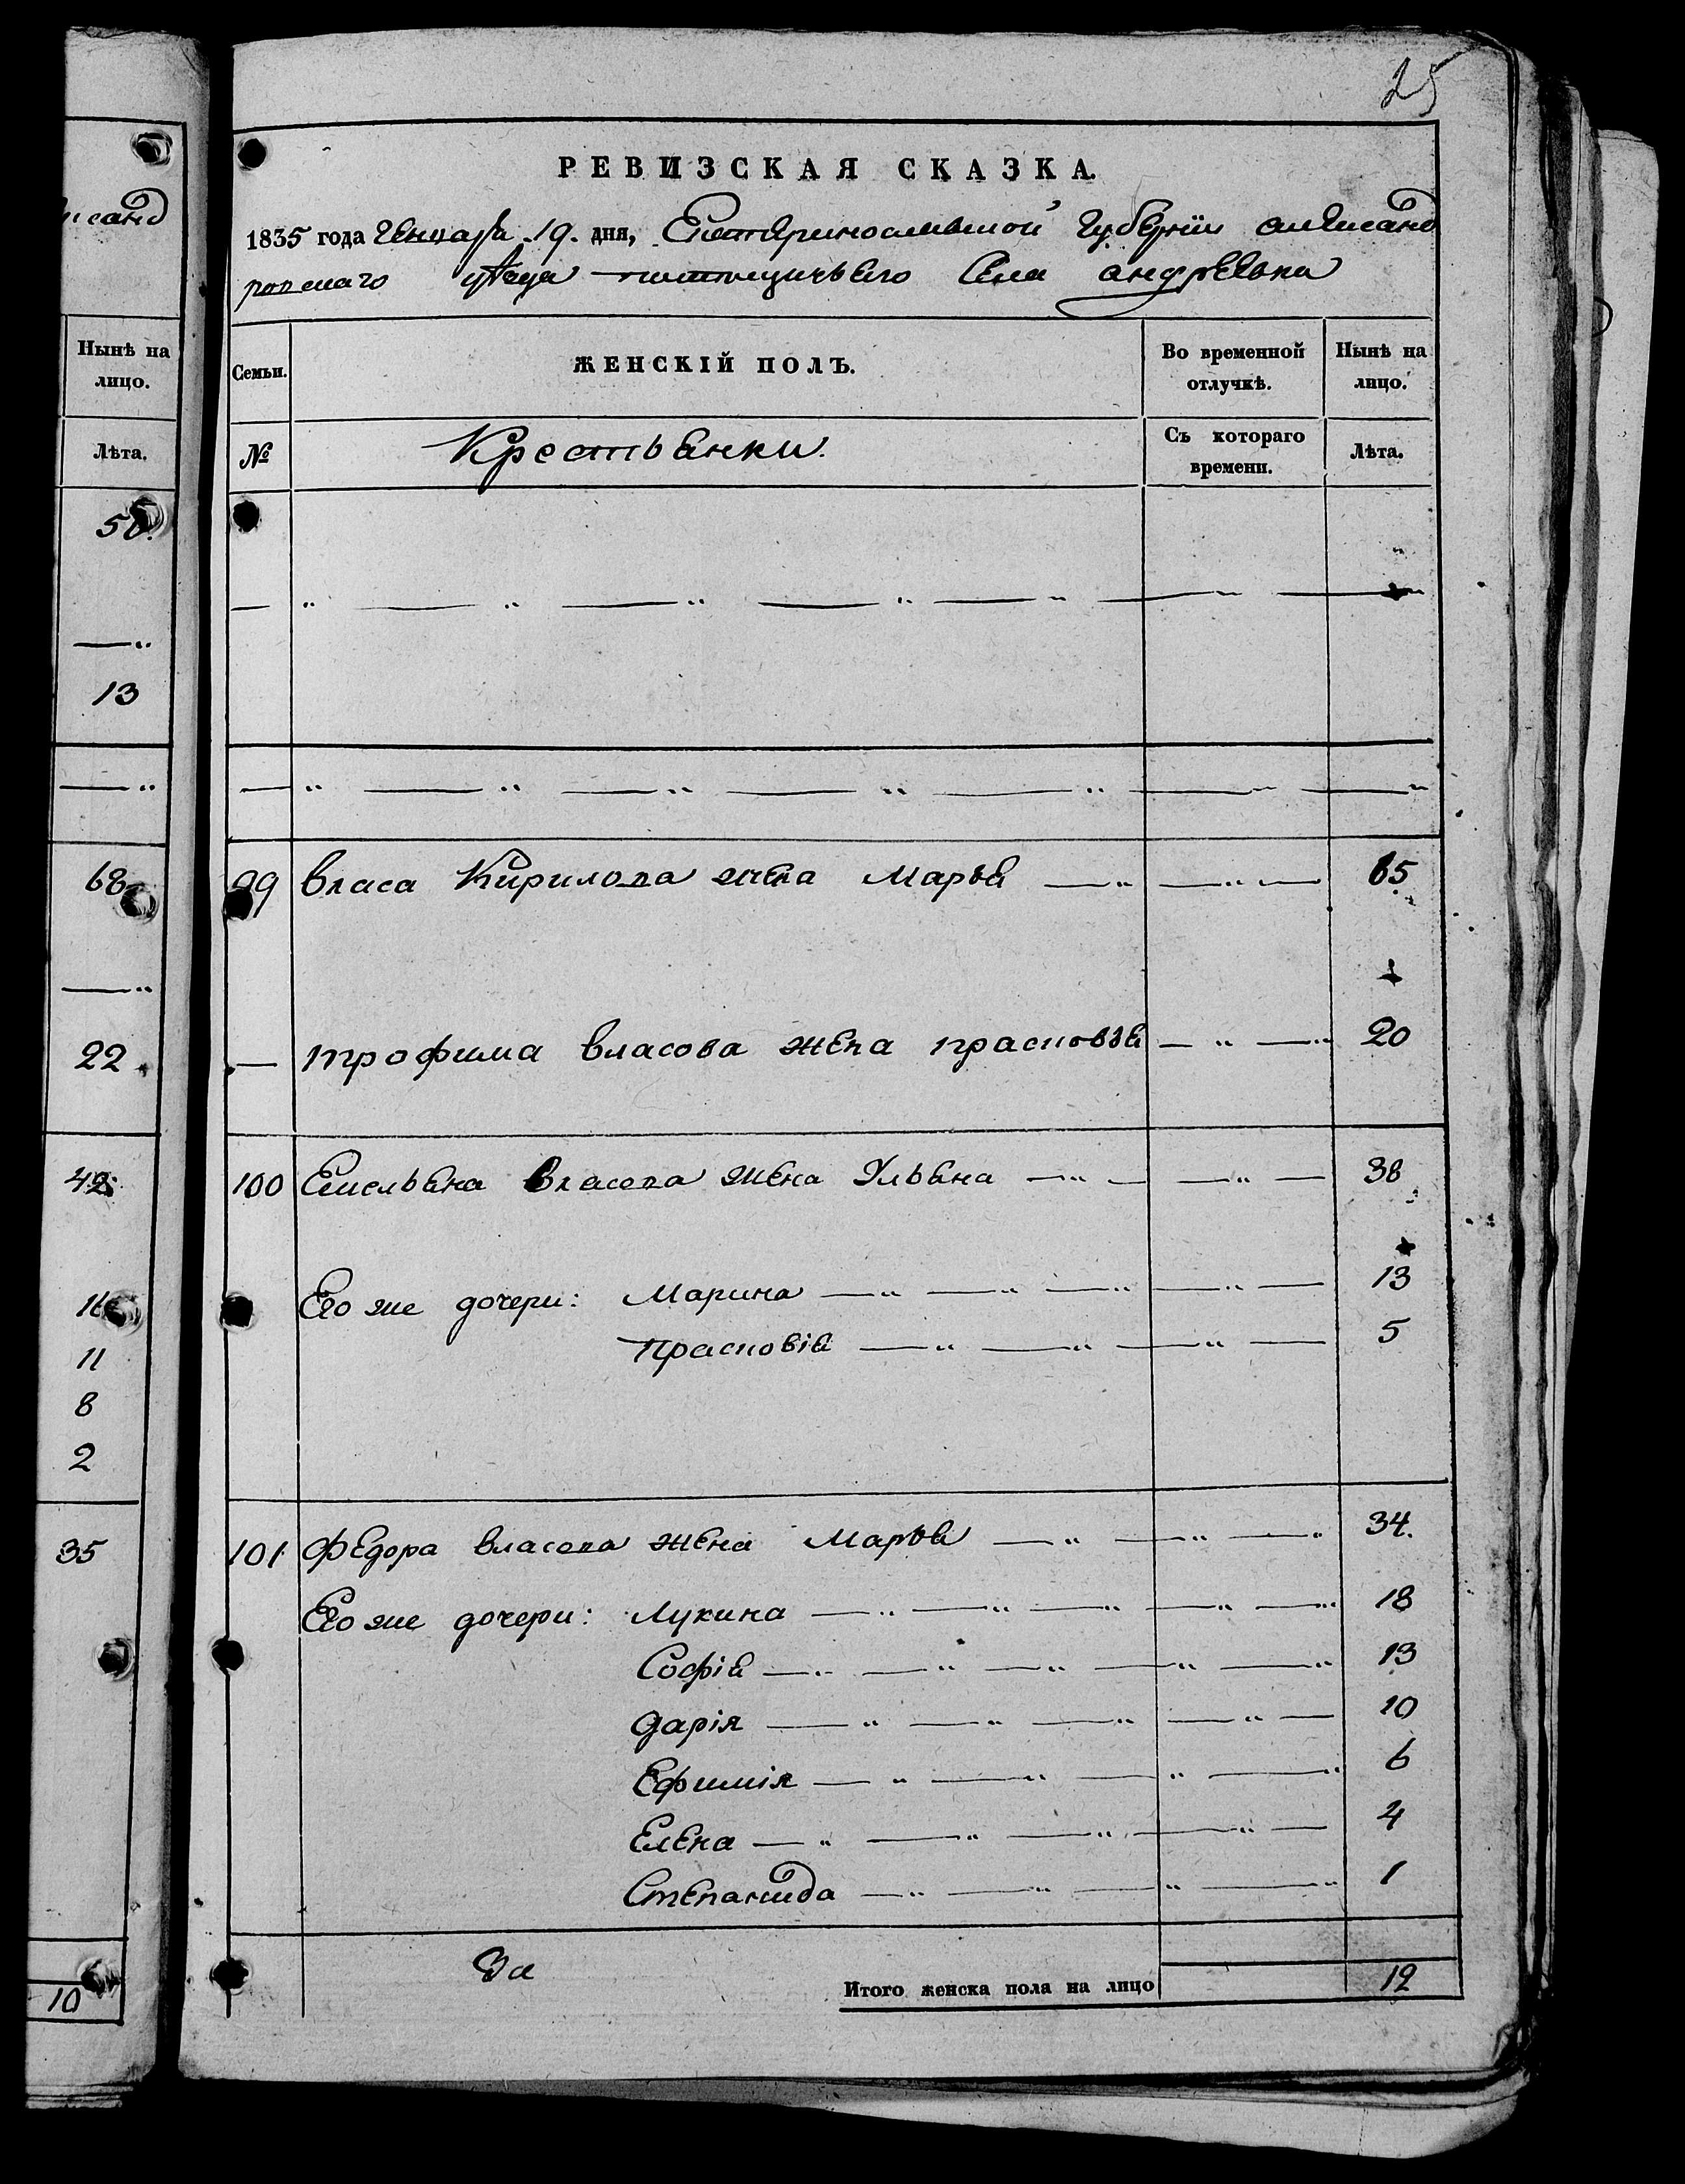 25
исанд
РЕВИЗСКАЯ СКАЗКА.
1835 года Генваря 19. дня, Екатеринославской Губернiи Александ
ровскаго уѣзда Села андрѣевки
Нынѣ на лицо.
Лѣта.
50.
13
68
22
42
11
8
2
35
10
Семьи.
ЖЕНСКIЙ ПОЛЪ.
Во временной отлучкѣ.
Нынѣ на лицо.
№
Крестьянки.
Съ котораго времени.
Лѣта.
99 власа Кирилова жена Марья 65
трофима власова жена прасковья 20
100 Емельяна власова жена Ульяна 38
Его же дочери: Марина 13
прасковiя 5
101 Федора власова жена Марья 34.
Его же дочери: Лукина 18
Софiя 13
дарiя 10
Ефимiя 6
Елена 4
Степанида 1
За
Итого женска пола на лицо 12